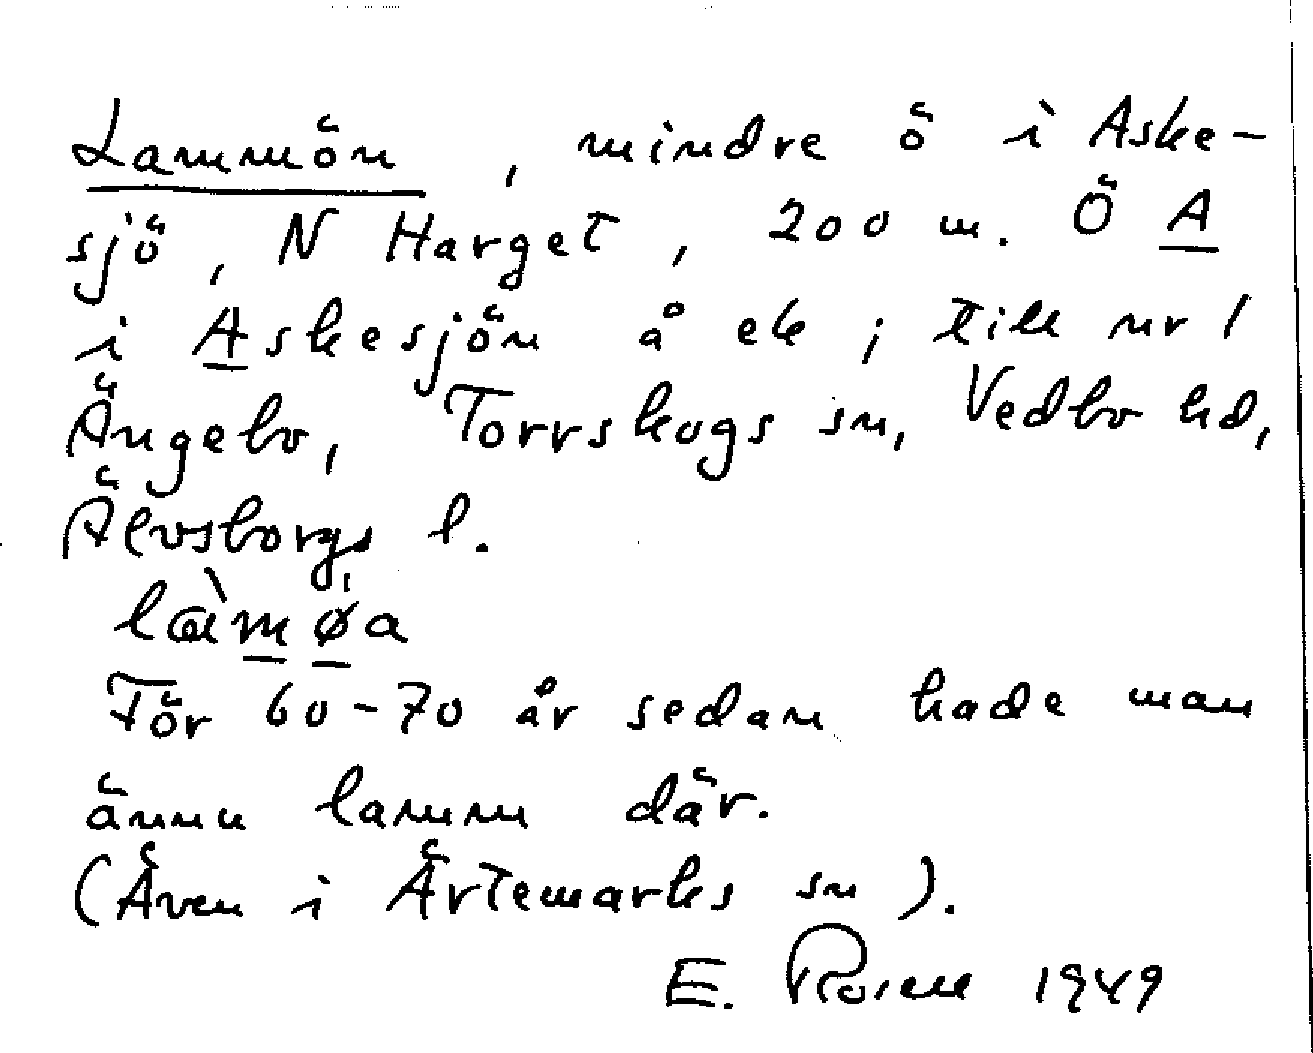 Lammön, mindre ö i Aske-
sjö, N Harget, 200 m. Ö A
i Askesjön å ek; till nr 1
Ängebo, Torrskogs sn, Vedbo hd,
Älvsborgs l.
För 60-70 år sedan hade man
ännu lamm där.
(Även i Ärtemarks sn).
E. Rosell 1949